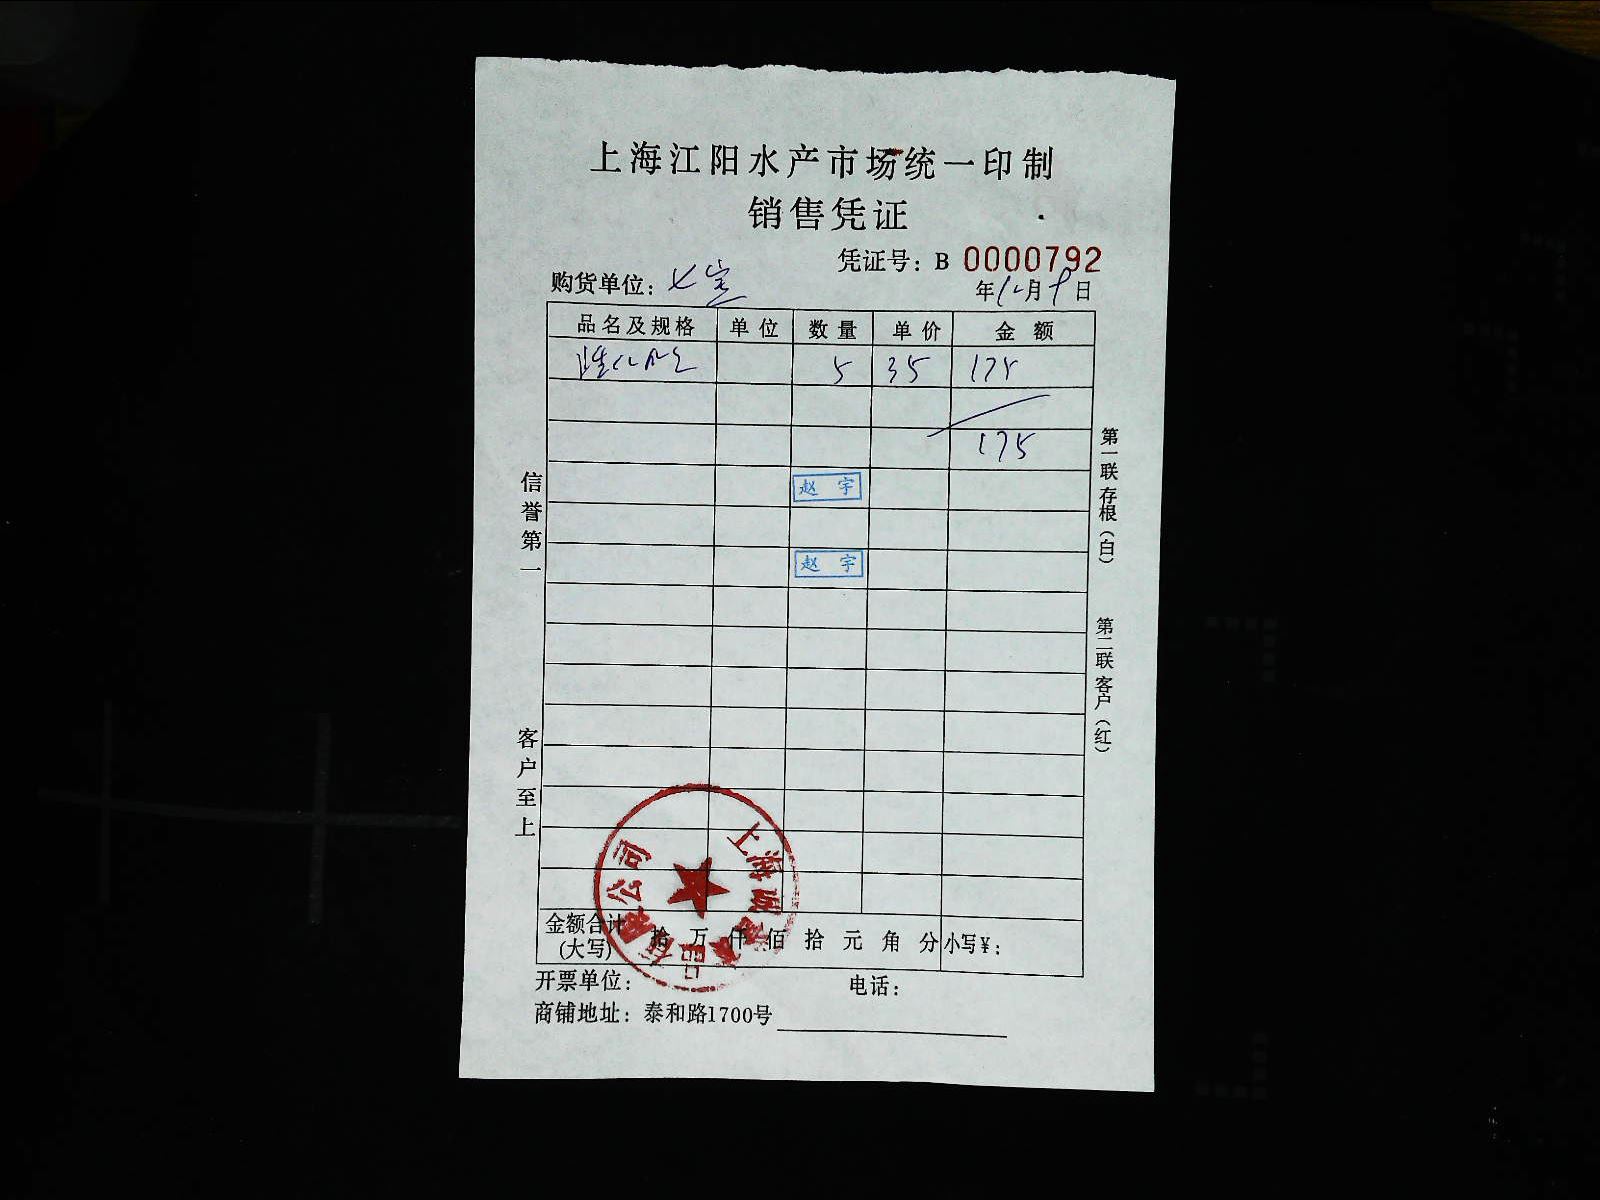 上海江阳水产市场统一印制
销售凭证
凭证号：B 0000792
购货单位：七宝
年12月9日
品名及规格 单位 数量 单价 金额
5 35 175
175
赵宇
赵宇
信誉第一
客户至上
第一联存根（白）
第二联客户（红）
金额合计（大写） 拾 万 仟 佰 拾 元 角 分 小写¥：
上海
有限公司
开票单位： 电话：
商铺地址：泰和路1700号